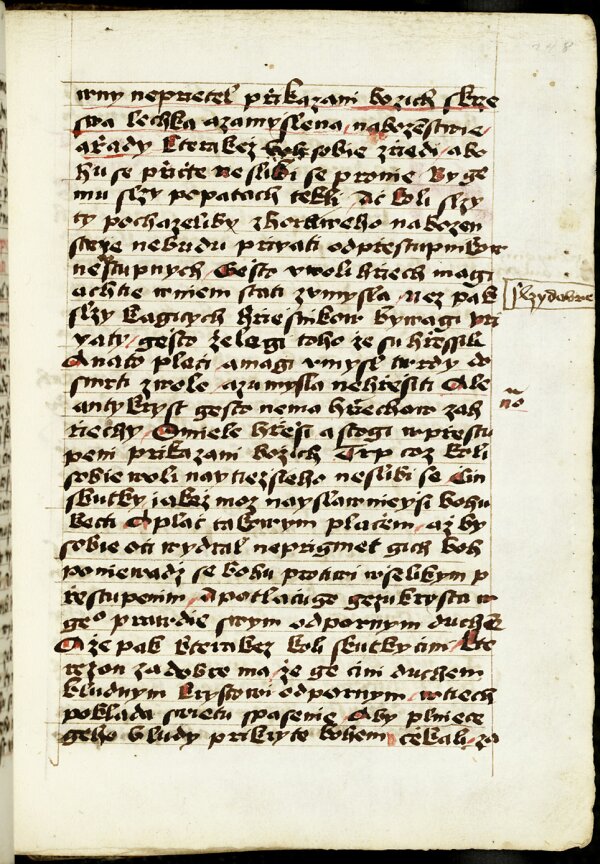 wny neprietel přikazani bozich skrze
swa lechka azamyslena nabozenstwie
ařady kterakez boh sobie zriedi abo
hu se přičte neslibi se pronie By ge
mu slzy popatach tekli Ač koli slzy
ty pochazeliby zhorliweho nabozen
stwie nebudu priyati odprestupnikow
nestupnych Gesto vwoli hřiech magi
achtie wniem stati zumysla nez pak
slzy kagicych hriesnikow bywagi pri
yaty gesto zelegi toho ze su hřessili
Anato placi amagi vmysl twrdy do
smrti zwole azumysla nehřessiti Ale
antykryst gesto nema hřiechow zah
riechy Smiele hřeši astogi wprestu
peni prikazani bozich Trp coz koli
sobie woli naytiezsieho neslibi se Čin
skutky jakez moz nayslawnieysi bohu
kecti A plač takowym plačem azby
sobie oči wydral neprigmet gich boh
poniewadz se bohu protiwi wselikym p
řestupenim Apotlačuge gezukrysta w
geo prawdie swym odpornym duchem
A že pak kterakez koli skutky cini kte
rezon zadobre ma že ge cini duchem
bludnym krystowi odpornym wtiech
poklada swietu spasenie Aby plniece
geho bludy prikryte bohem čekali za
slzy dobre